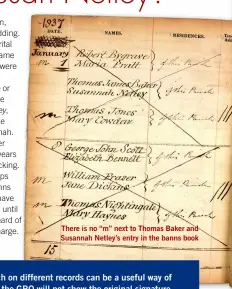 usan Netley?
n,
dding.
rital
ame
were
e or
ey,
e
nah.
er
years
cking.
ps
nns
ave
until
eard of
arge.
1837
DATE.
NAMES.
RESIDENCES.
January
m 1
Robert Bygrave
Maria Pratt
of this Parish
Thomas James Baker
Susannah Netley
of this Parish
m
Thomas Jones
May Cowdew
George John Scott
Elizabeth Bennett
of this Parish
m
William Frazer
Jane Dickens
of this Parish
m
Thomas Nightingale
Mary Haynes
of this Parish
There is no “m” next to Thomas Baker and
Susannah Netley's entry in the banns book
15
ch on different records can be a useful way of
the GRO will not show the original signature